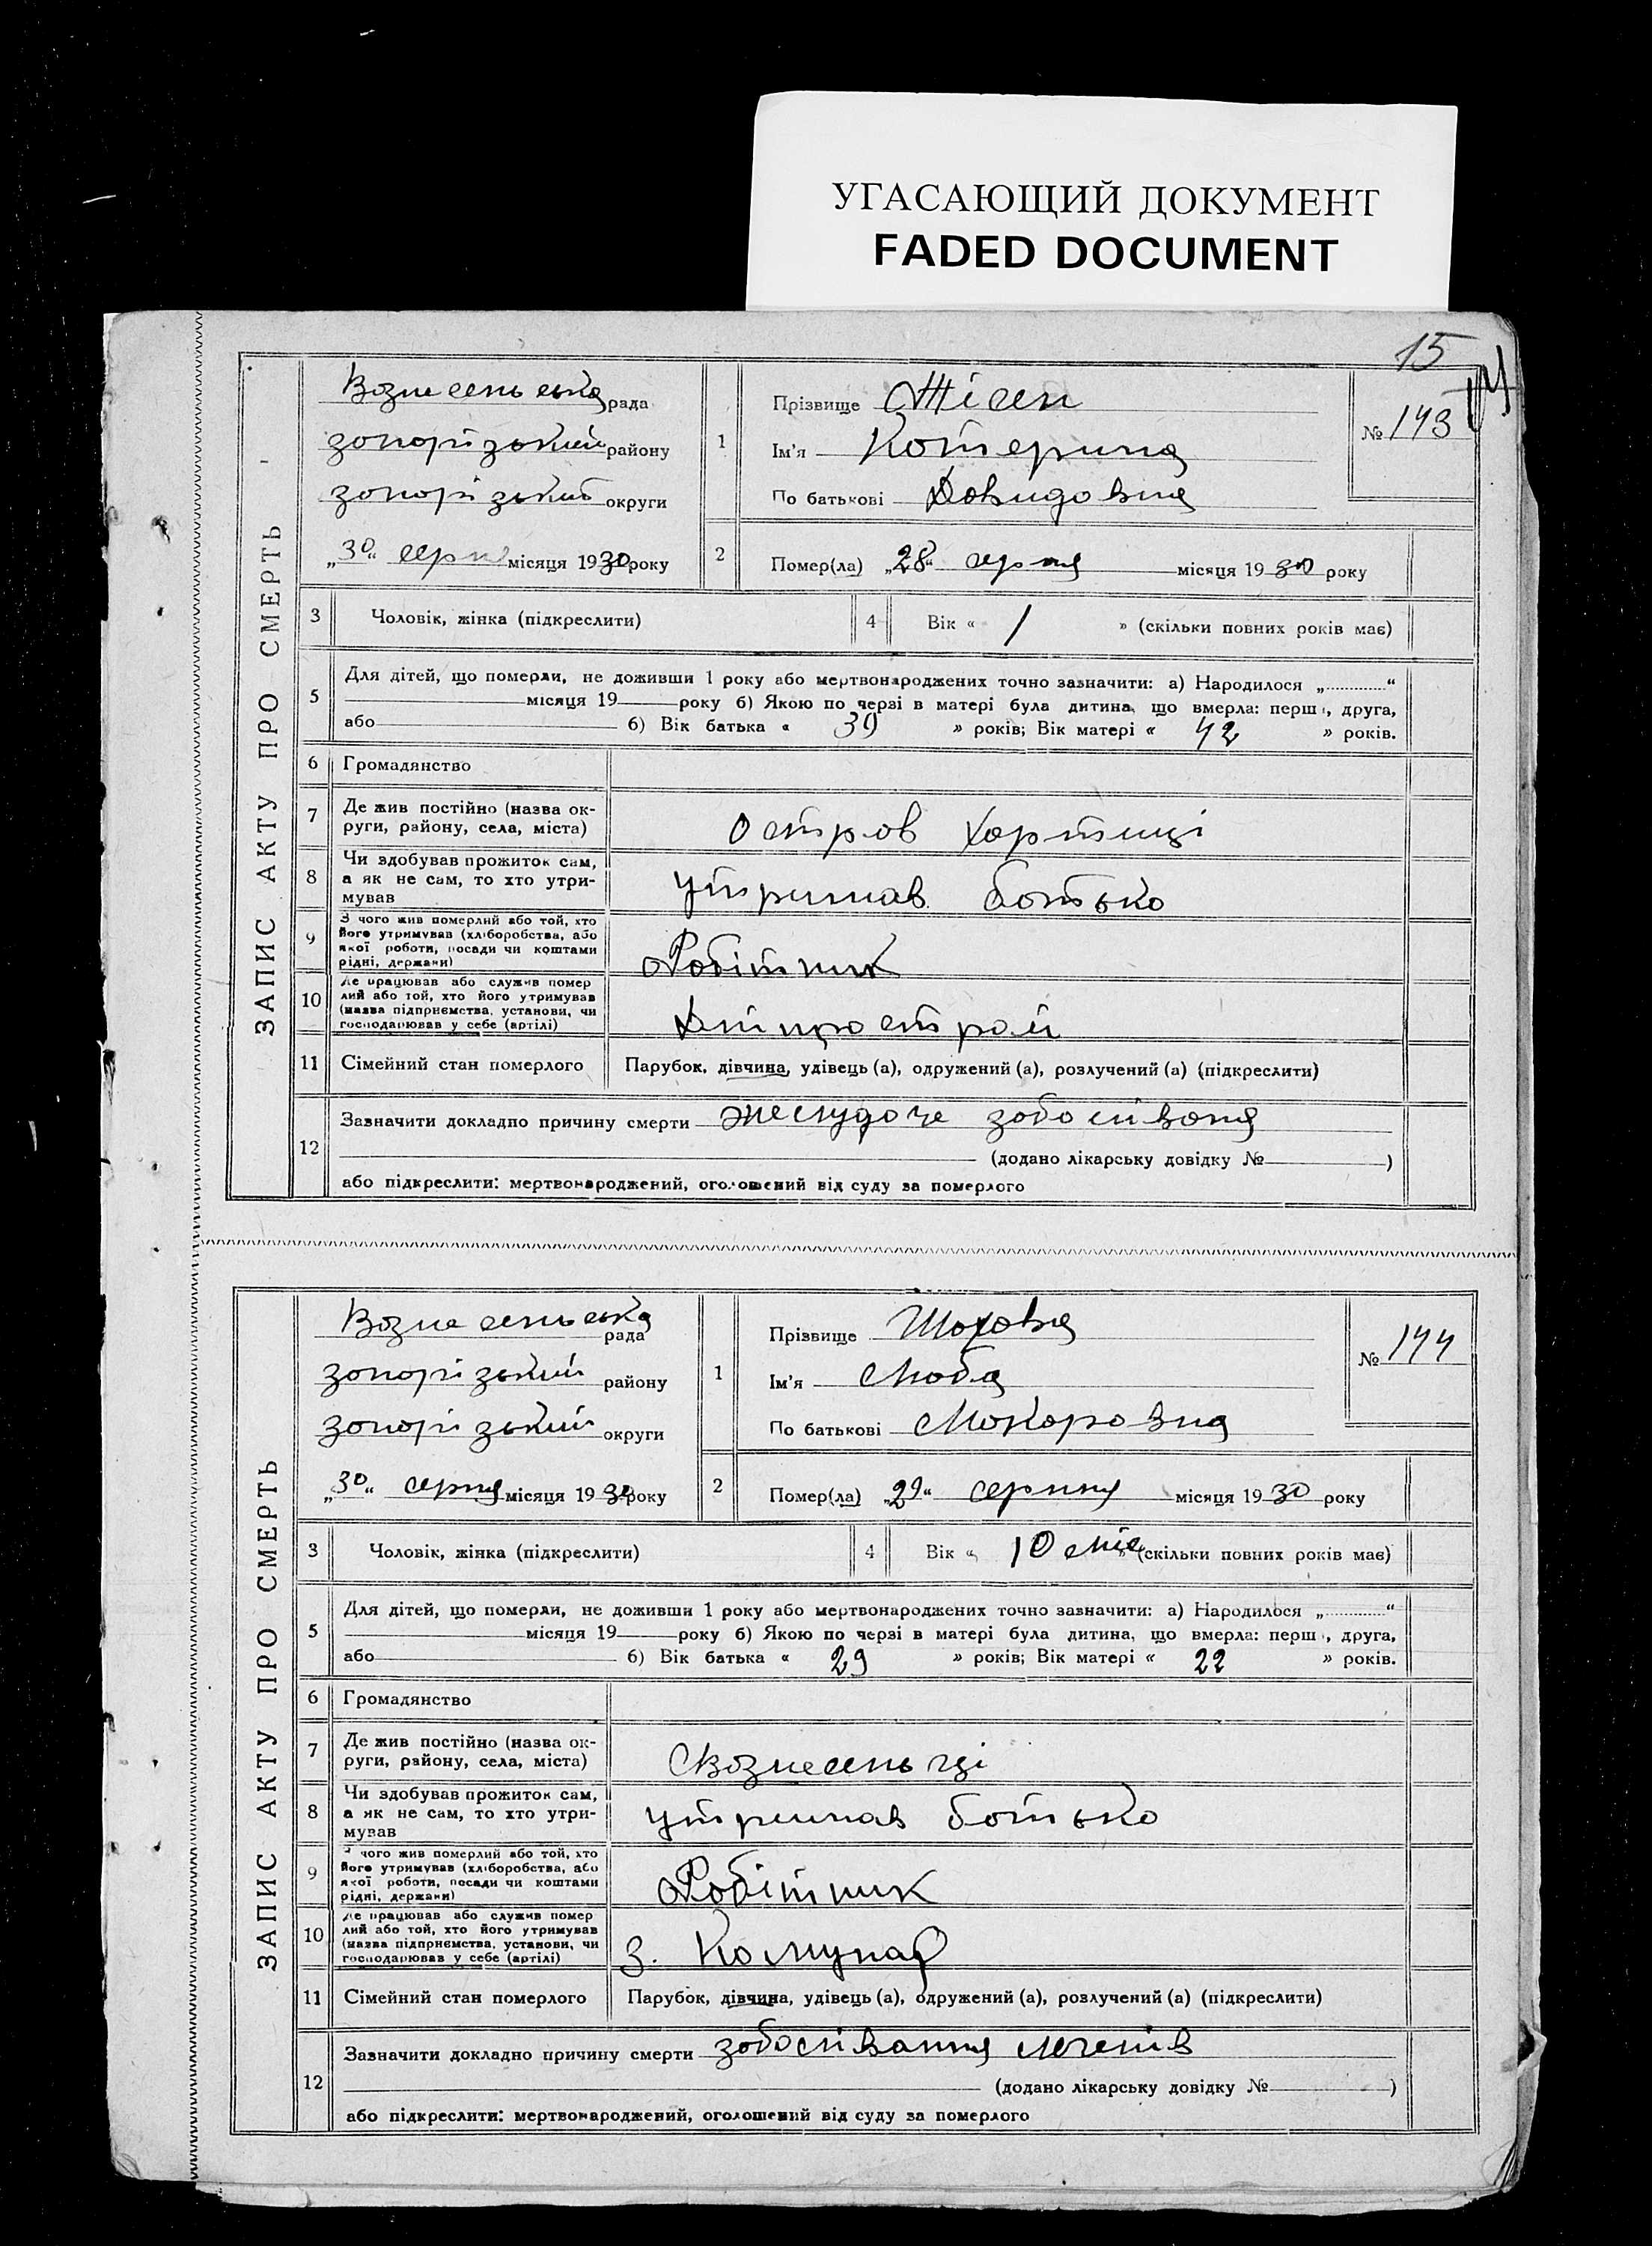 УГАСАЮЩИЙ ДОКУМЕНТ
FADED DOCUMENT
15
ЗАПИС АКТУ ПРО СМЕРТЬ
Вознесенська рада
запорізький району
запорізький округи
„30“ серпня місяця 1930 року
1
Прізвище Тісен
Ім'я Катерина
По батькові Давидовна
№ 143
2
Помер(ла) „28“ серпня місяця 1930 року
3 Чоловік, жінка (підкреслити)
4 Вік « 1 » (скільки повних років має)
5
Для дітей, що померли, не доживши 1 року або мертвонароджених точно зазначити: а) Народилося „ “
місяця 19 року б) Якою по черзі в матері була дитина, що вмерла: перша, друга,
або б) Вік батька « 39 » років; Вік матері « 42 » років.
6 Громадянство
7 Де жив постійно (назва ок-
руги, району, села, міста)
Остров Хортиці
8 Чи здобував прожиток сам,
а як не сам, то хто утри-
мував
утримав батько
9 З чого жив померлий або той, хто
його утримував (хліборобства, або
якої роботи, посади чи коштами
рідні, держави)
Робітник
10 Де працював або служив помер
лий або той, хто його утримував
(назва підприємства, установи, чи
господарював у себе (артілі)
Дніпрострой
11 Сімейний стан померлого
Парубок, дівчина, удівець (а), одружений (а), розлучений (а) (підкреслити)
12
Зазначити докладно причину смерти желудоче заболівання
(додано лікарську довідку № )
або підкреслити: мертвонароджений, оголошений від суду за померлого
ЗАПИС АКТУ ПРО СМЕРТЬ
Вознесенська рада
запорізький району
запорізький округи
„30“ серпня місяця 1930 року
1
Прізвище Шахова
Ім'я Люба
По батькові Макаровна
№ 144
2
Помер(ла) „29“ серпня місяця 1930 року
3 Чоловік, жінка (підкреслити)
4 Вік « 10 міс » (скільки повних років має)
5
Для дітей, що померли, не доживши 1 року або мертвонароджених точно зазначити: а) Народилося „ “
місяця 19 року б) Якою по черзі в матері була дитина, що вмерла: перша, друга,
або б) Вік батька « 29 » років; Вік матері « 22 » років.
6 Громадянство
7 Де жив постійно (назва ок-
руги, району, села, міста)
Вознесеньці
8 Чи здобував прожиток сам,
а як не сам, то хто утри-
мував
утримав батько
9 З чого жив померлий або той, хто
його утримував (хліборобства, або
якої роботи, посади чи коштами
рідні, держави)
Робітник
10 Де працював або служив помер
лий або той, хто його утримував
(назва підприємства, установи, чи
господарював у себе (артілі)
З. Комунар
11 Сімейний стан померлого
Парубок, дівчина, удівець (а), одружений (а), розлучений (а) (підкреслити)
12
Зазначити докладно причину смерти заболівання легенів
(додано лікарську довідку № )
або підкреслити: мертвонароджений, оголошений від суду за померлого